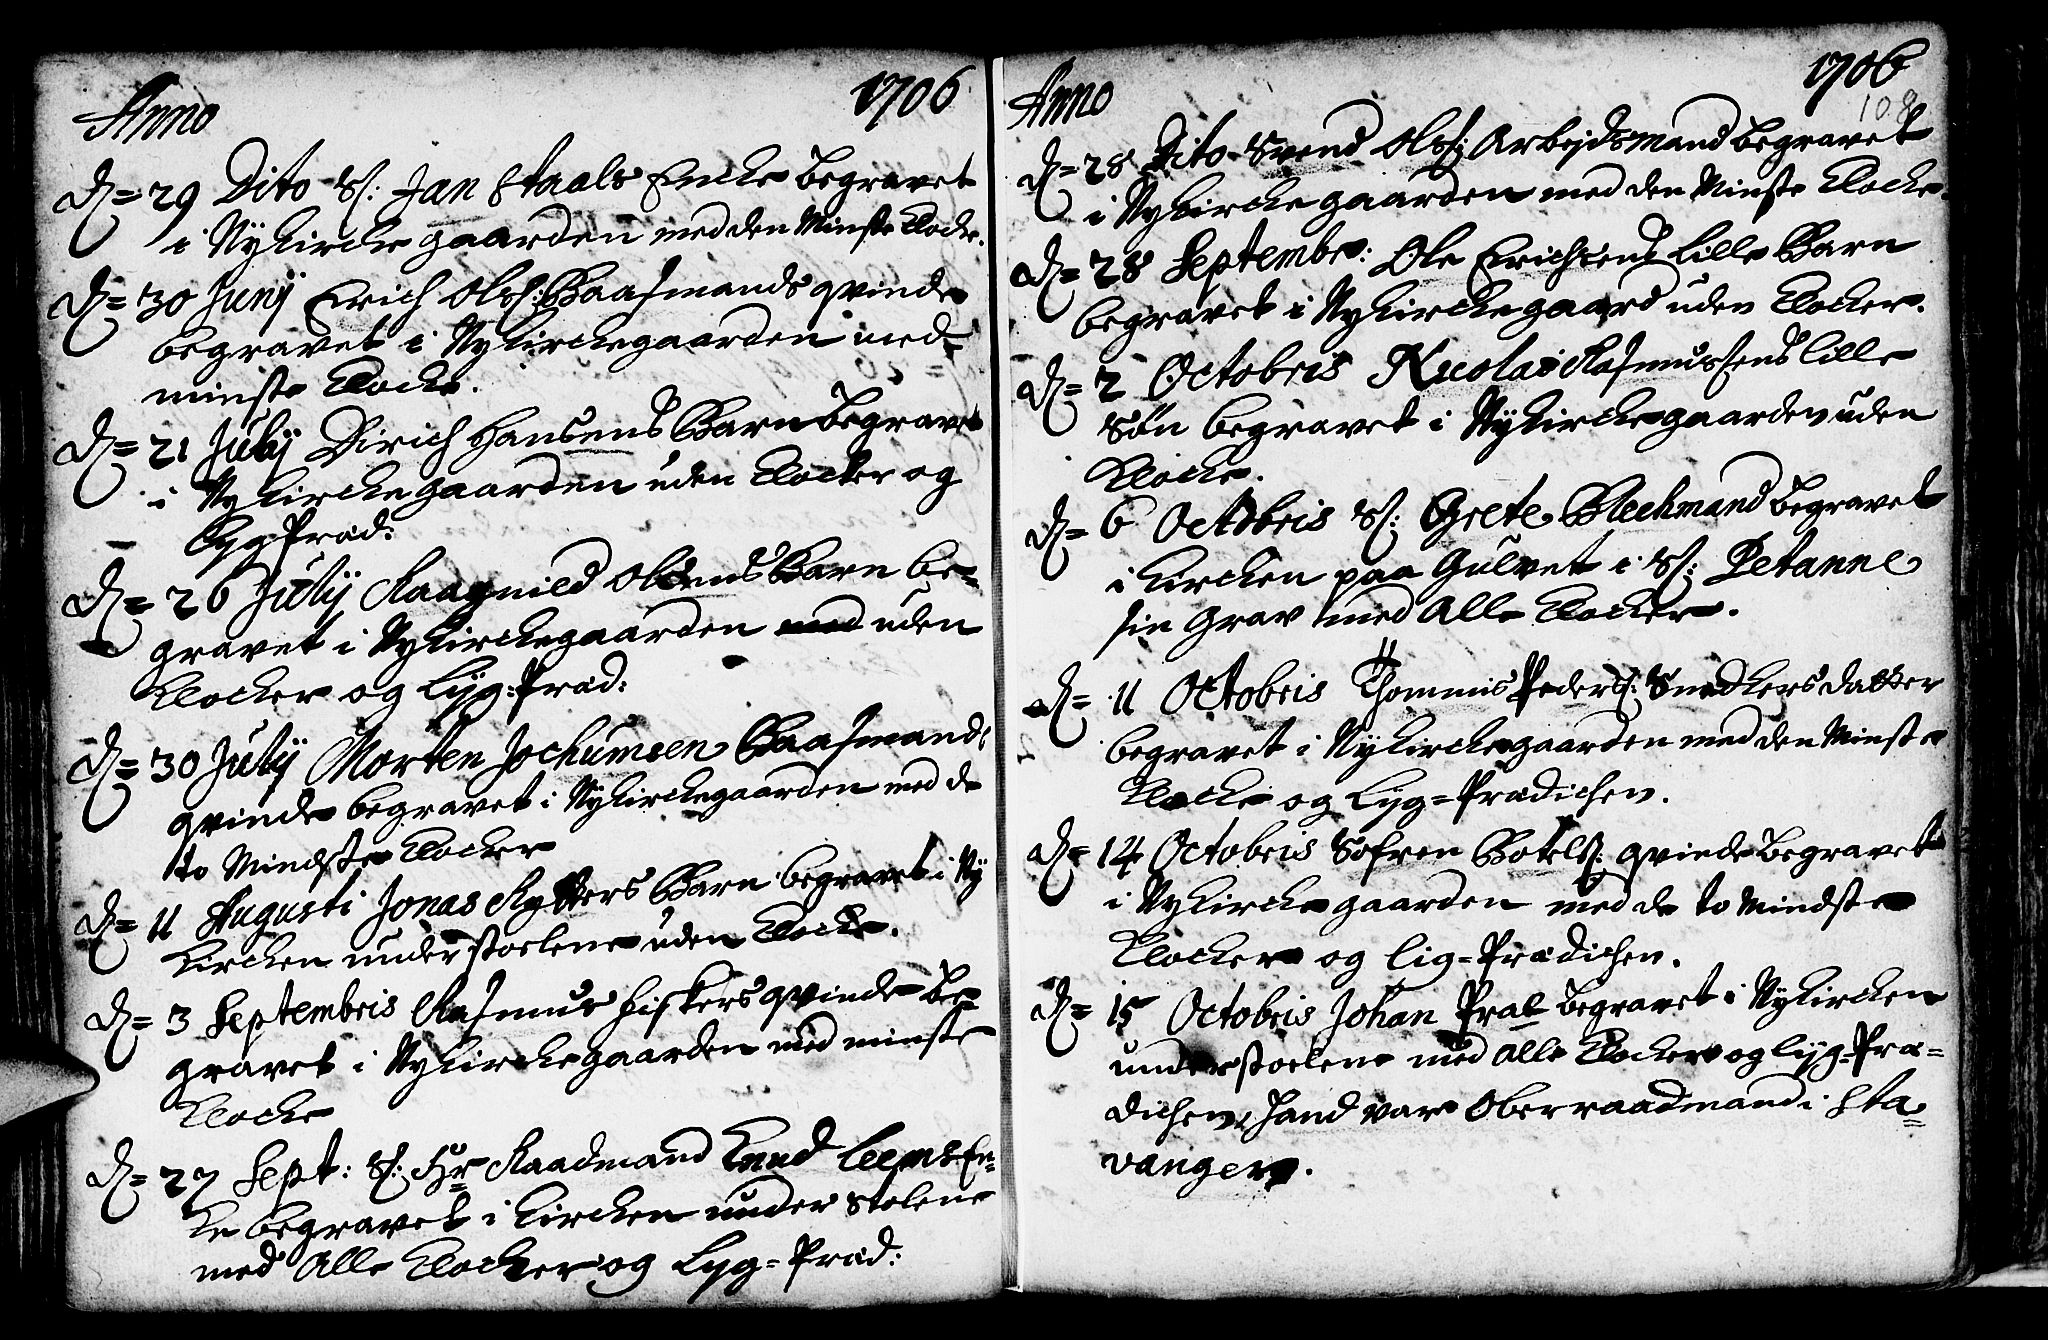 Anno 1706
D= 29 Dito Sl: Jan Staals Encke begravet
i Nykirckegaarden med den Minste Klocke.
D= 30 Junij Erich Olss: Baassmands qvinde
begravet i Nykirckegaarden med
minste Klocke.
D= 21 Julij Dirich Hansens Barn begravet
i Nykirckegaarden uden Klocker og
Lyg-Præd:
D= 26 Julij Raagnield Olsens Barn be=
gravet i Nykirckegaarden med uden
Klocker og Lyg-Præd:
D= 30 Julij Morten Jochumsen Baassmands
qvinde begravet i Nykirckegaarden med de
to Mindste Klocker
D= 11 Augusti Jonas Rytters Barn begravet i Ny
Kircken under stoelene uden Klocke.
D= 3 Septembris Rasmus Fiskers qvinde be=
gravet i Nykirckegaarden med minste
Klocke
D= 27 Sept: Sl: Hr Raadmand Knud Leems En=
ke begravet i Kircken under Stolene
med Alle Klocker og Lyg=Præd:
Anno 1706
108
D= 28 Dito Svend Olss: Arbejdsmand begravet
i Nykirckegaarden med den Minste Klocke.
D= 28 Septembr: Ole Erichsens lille Barn
begravet i Nykirckegaard uden Klocker.
D= 2 Octobris Nicolai Rasmussens lille
Søn begravet i Nykirckegaarden uden
Klocke.
D= 6 Octobris Sl: Grete Blechmand begravet
i Kircken paa Gulvet i Sl: Petanne
sin Grav med Alle Klocker.
D= 11 Octobris Thommis Peders: Snedkers datter
begravet i Nykirckegaarden med den Minste
Klocke og Lyg=Prædichen.
D= 14 Octobris Sofren Botels: qvinde begravet
i Nykirckegaarden med de to Mindste
Klocker og Lig=Prædichen.
D= 15 Octobris Johan Pral begravet i Nykircken
under stoelene med Alle Klocker og Lyg=Præ=
dichen, Hand var Oberraadmand i Sta=
vanger.